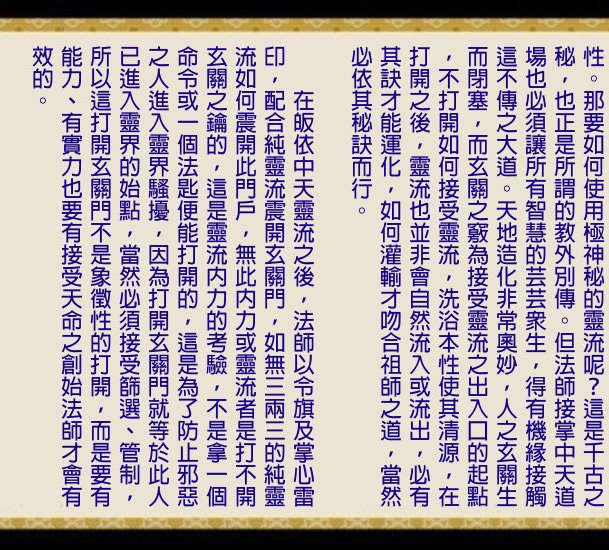 性。那要如何使用極神秘的靈流呢？這是千古之
秘，也正是所謂的教外別傳。但法師接掌中天道
場也必須讓所有智慧的芸芸眾生，得有機緣接觸
這不傳之大道。天地造化非常奧妙，人之玄關生
而閉塞，而玄關之竅為接受靈流之出入口的起點
，不打開如何接受靈流，洗浴本性使其清源，在
打開之後，靈流也並非會自然流入或流出，必有
其訣才能運化，如何灌輸才吻合祖師之道，當然
必依其秘訣而行。
在皈依中天靈流之後，法師以令旗及掌心雷
印，配合純靈流震開玄關門，如無三兩三的純靈
流如何震開此門戶，無此內力或靈流者是打不開
玄關之鑰的，這是靈流內力的考驗，不是拿一個
命令或一個法匙便能打開的，這是為了防止邪惡
之人進入靈界騷擾，因為打開玄關門就等於此人
已進入靈界的始點，當然必須接受篩選、管制，
所以這打開玄關門不是象徵性的打開，而是要有
能力、有實力也要有接受天命之創始法師才會有
效的。